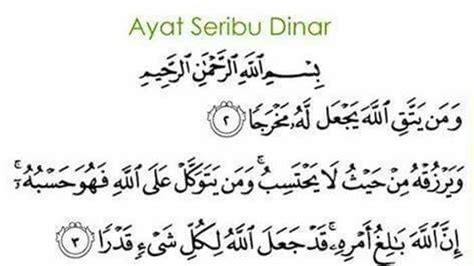 Ayat Seribu Dinar
بِسْمِ اللَّهِ الرَّحْمَٰنِ الرَّحِيمِ
وَمَن يَتَّقِ اللَّهَ يَجْعَل لَّهُ مَخْرَجًا ﴿٢﴾
وَيَرْزُقْهُ مِنْ حَيْثُ لَا يَحْتَسِبُ ۚ وَمَن يَتَوَكَّلْ عَلَى اللَّهِ فَهُوَ حَسْبُهُ ۚ
إِنَّ اللَّهَ بَالِغُ أَمْرِهِ ۚ قَدْ جَعَلَ اللَّهُ لِكُلِّ شَيْءٍ قَدْرًا ﴿٣﴾